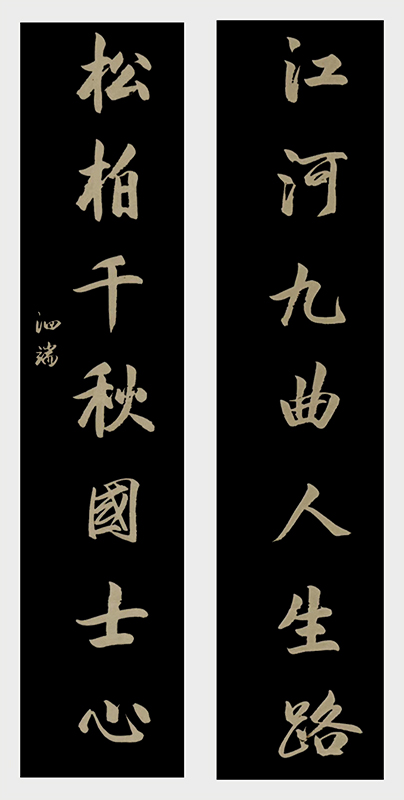 江河九曲人生路
松柏千秋國士心
泗端